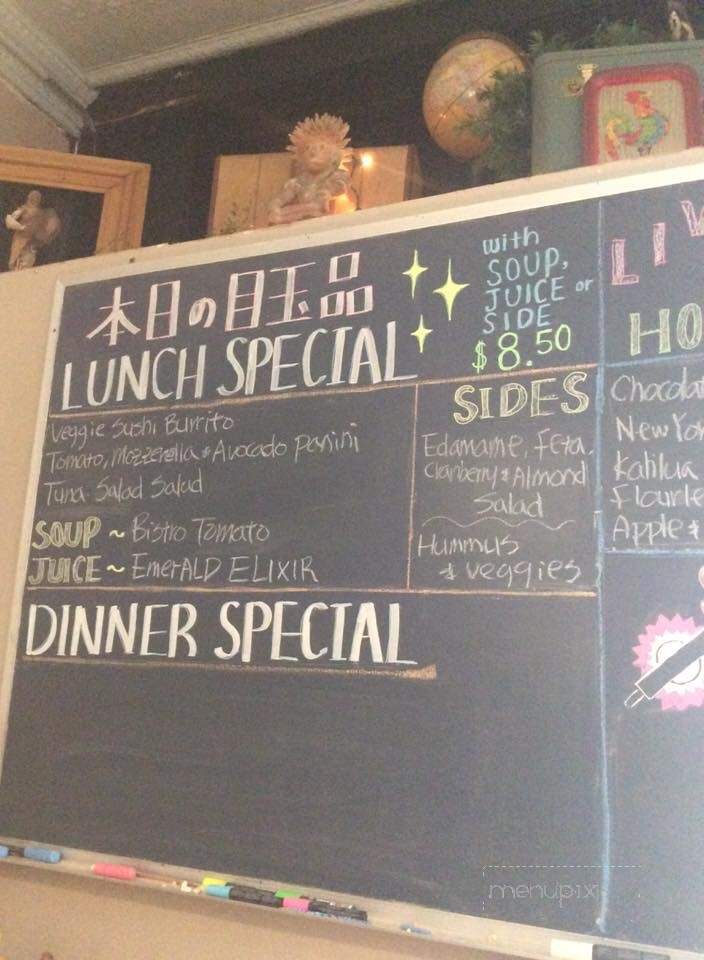 本日の目玉品
LUNCH SPECIAL
with
SOUP,
JUICE or
SIDE
$8.50
Veggie Sushi Burrito
Tomato, Mozzerella & Avocado Panini
Tuna Salad Salad
SOUP ~ Bistro Tomato
JUICE ~ EmerALD ELIXIR
SIDES
Edamame, Feta,
Cranberry & Almond
Salad
Hummus
& veggies
DINNER SPECIAL
LIV
HO
Chocolat
New Yor
Kahlua
Flourle
Apple &
menupix